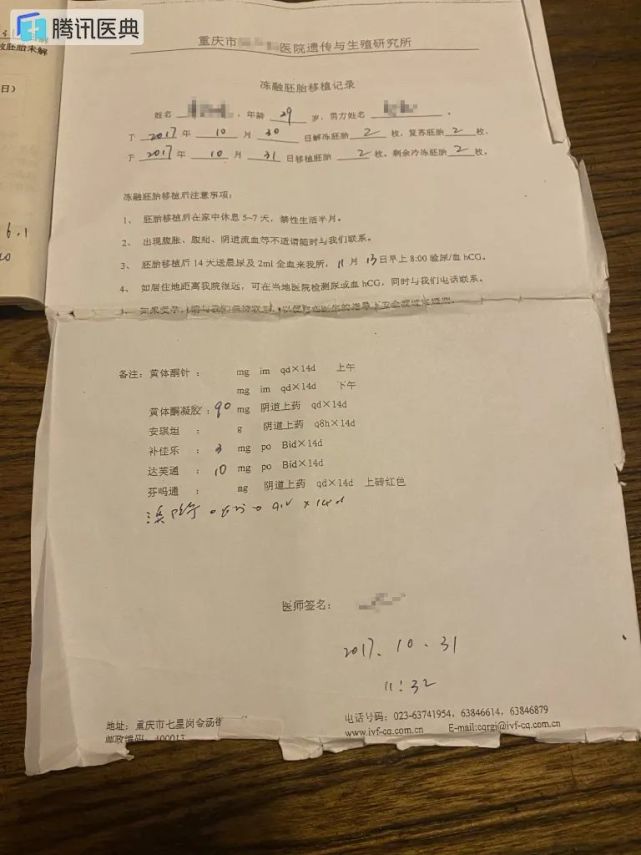 腾讯医典
胚胎未解
日)
6.1
重庆市 医院遗传与生殖研究所
冻融胚胎移植记录
姓名 ,年龄 29 岁,男方姓名 。
于 2017 年 10 月 30 日解冻胚胎 2 枚,复苏胚胎 2 枚。
于 2017 年 10 月 31 日移植胚胎 2 枚,剩余冷冻胚胎 2 枚。
冻融胚胎移植后注意事项:
1、 胚胎移植后在家中休息 5~7 天,禁性生活半月。
2、 出现腹胀、腹胀、阴道流血等不适请随时与我们联系。
3、 胚胎移植后 14 天送晨尿及 2ml 全血来我所, 11 月 13 日早上 8:00 验尿/血 hCG。
4、 如居住地距离我院很远,可在当地医院检测尿或血 hCG,同时与我们电话联系。
备注:黄体酮针 : mg im qd×14d 上午
mg im qd×14d 下午
黄体酮凝胶:90 mg 阴道上药 qd×14d
安琪坦 : g 阴道上药 q8h×14d
补佳乐 : 3 mg po Bid×14d
达芙通 : 10 mg po Bid×14d
芬吗通 : mg 阴道上药 qd×14d 上砖红色
医师签名:
2017. 10. 31
11:32
地址:重庆市七星岗金汤街
邮政编码:400013
电话号码:023-63741954,63846614,63846879
www.ivf-cq.com.cn E-mail:cqrgj@ivf-cq.com.cn